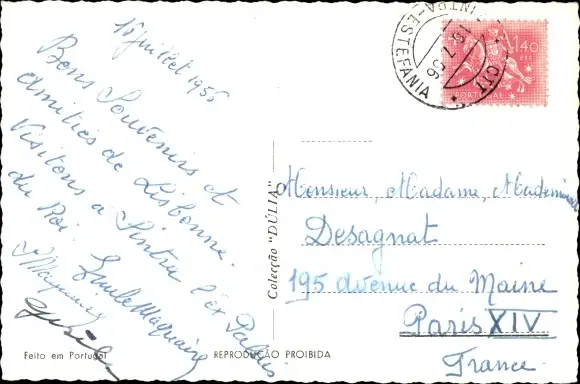 16 juillet 1956
Bons Souvenirs et
amitiés de Lisbonne.
Visitons a Sintra l'ex Palais
du Roi.
Feito em Portugal
REPRODUÇÃO PROIBIDA
Colecção "DÚLIA"
SINTRA-ESTEFANIA
CTT
56
1$40
PORTUGAL
Monsieur, Madame, Mademoiselle
Desagnat
195 avenue du Maine
Paris XIV
France